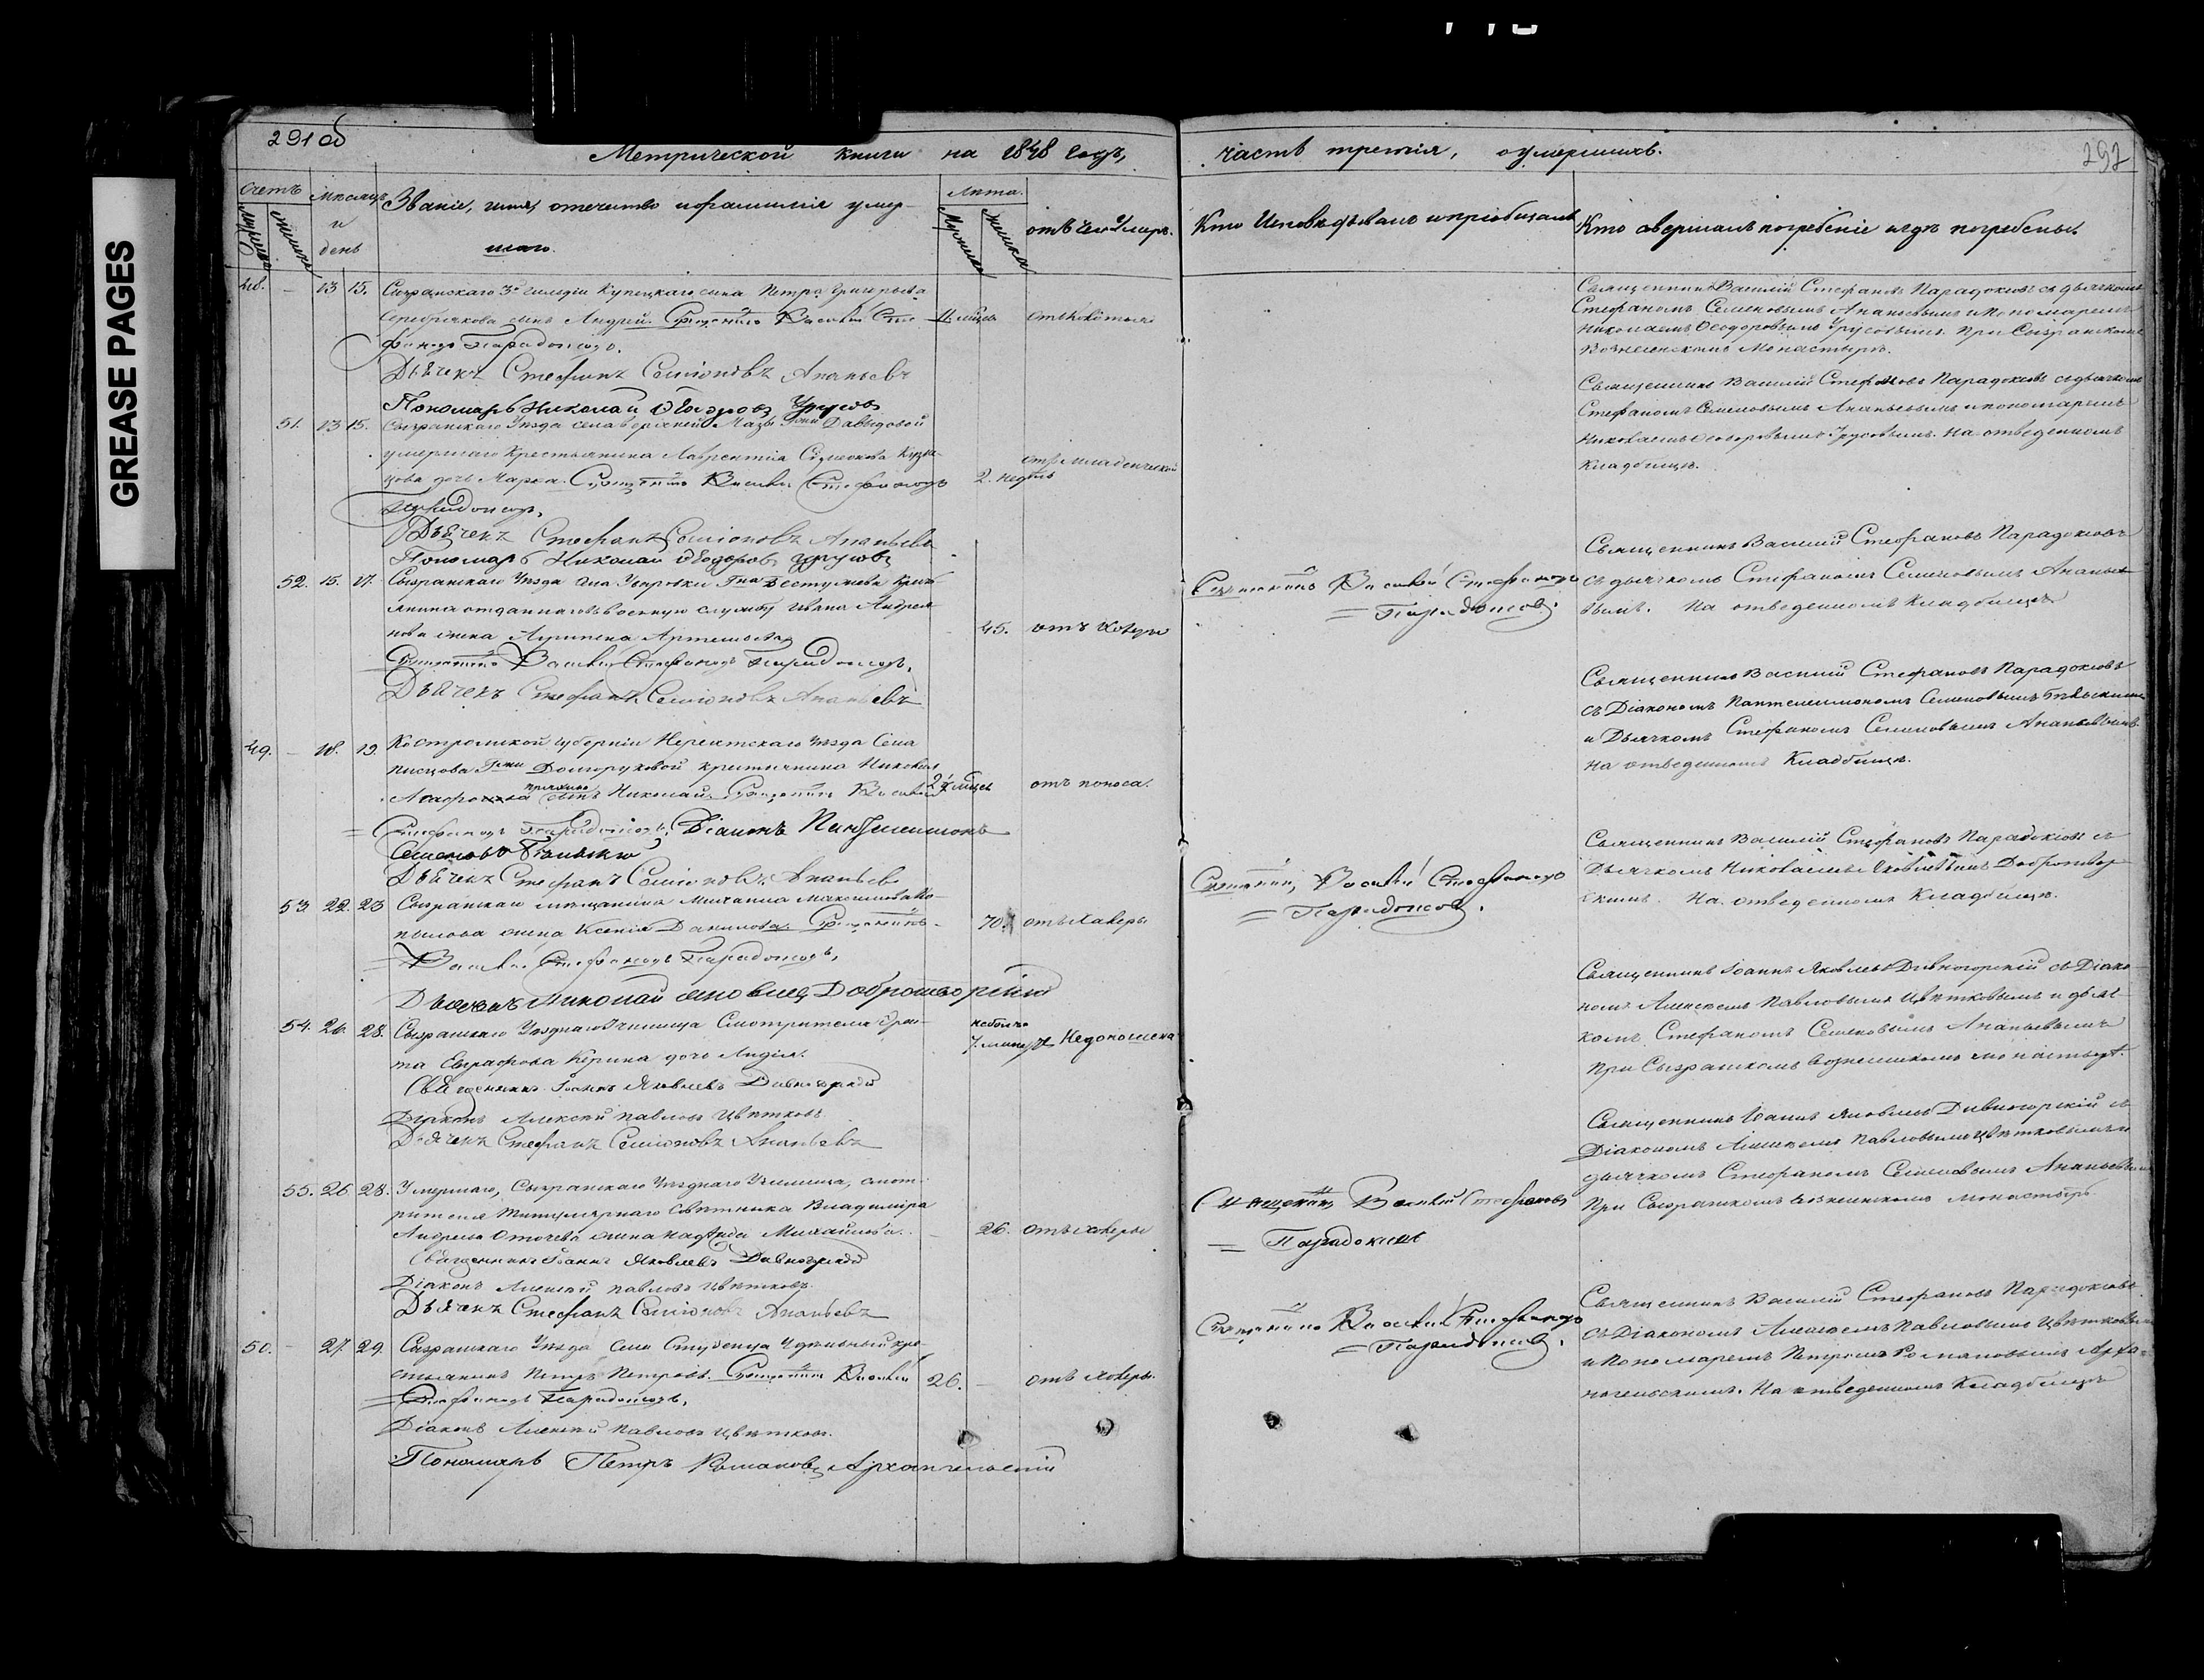 GREASE PAGES
291 об
Метрической книги на 1848 годъ,
часть третія, о умершихъ.
292
Счетъ
Мѣсяцъ и день
Званіе, имя, отчество и фамилія умершаго.
Лѣта.
Мужеска
Женска
отъ чего умеръ.
Кто исповѣдывалъ и пріобщалъ
Кто совершалъ погребеніе и гдѣ погребены.
48. — 13 15. Сызранскаго 3й гильдіи Купецкаго сына Петра Григорьева
Серебрякова сынъ Андрей. Священникъ Василій Сте-
фановъ Парадоксовъ.
Дьячекъ Стефанъ Семіоновъ Ананьевъ
Пономарь Николай Ѳеодоровъ Урусовъ
Священникъ Василій Стефановъ Парадоксовъ съ дьячкомъ
Стефаномъ Семеновымъ Ананьевымъ и пономаремъ
Николаемъ Ѳеодоровымъ Урусовымъ. При Сызранскомъ
Вознесенскомъ Монастырѣ.
51. 13 15. Сызранскаго Уѣзда села Верхней Мазы Гжи Давыдовой
умершаго Крестьянина Лаврентія
дочь Марѳа. Священникъ Василій Стефановъ
Парадоксовъ.
2. недѣль
отъ младенческой
Дьячекъ Стефанъ Семіоновъ Ананьевъ
Пономарь Николай Ѳеодоровъ Урусовъ
Священникъ Василій Стефановъ Парадоксовъ съ дьячкомъ
Стефаномъ Семеновымъ Ананьевымъ и пономаремъ
Николаемъ Ѳеодоровымъ Урусовымъ. На отведенномъ
Кладбищѣ.
52. 15. 17. Сызранскаго Уѣзда села
янина отданнаго въ военную службу Ивана Андрея-
нова жена Агрипена Артемьева
45. отъ холеры
Священникъ Василій Стефановъ Парадоксовъ.
Дьячекъ Стефанъ Семіоновъ Ананьевъ
Священникъ Василій Стефановъ
Парадоксовъ.
Священникъ Василій Стефановъ Парадоксовъ
съ дьячкомъ Стефаномъ Семеновымъ Ананье-
вымъ. На отведенномъ Кладбищѣ
49. — 18. 19. Костромской губерніи Нерехтскаго Уѣзда Села
Писцова Гжи Долгоруковой крестьянина Николая
сынъ Николай Священникъ Василій
отъ поноса.
Стефановъ Парадоксовъ. Діаконъ Пантелеимонъ
Семеновъ
Дьячекъ Стефанъ Семіоновъ Ананьевъ
Священникъ Василій Стефановъ Парадоксовъ
съ Діакономъ Пантелеимономъ Семеновымъ
и Дьячкомъ Стефаномъ Семеновымъ Ананьевымъ
на отведенномъ Кладбищѣ.
53. 22. 23 Сызранскаго мѣщанина Михаила Максимова
жена Ксенія Данилова. Священникъ
70. отъ холеры
Василій Стефановъ Парадоксовъ.
Дьячекъ Николай Яковлевъ Добротворскій
Священникъ Василій Стефановъ
Парадоксовъ.
Священникъ Василій Стефановъ Парадоксовъ съ
Дьячкомъ Николаемъ Яковлевымъ Добротвор-
скимъ. На отведенномъ Кладбищѣ.
54. 26. 28. Сызранскаго Уѣзднаго Училища Смотрителя
дочь Лидія.
Недоношена
Священникъ Іоаннъ Яковлевъ Дивногорскій
Діаконъ Алексѣй Павловъ Цвѣтковъ
Дьячекъ Стефанъ Семіоновъ Ананьевъ
Священникъ Іоаннъ Яковлевъ Дивногорскій съ Діако-
номъ Алексѣемъ Павловымъ Цвѣтковымъ и дьяч-
комъ Стефаномъ Семеновымъ Ананьевымъ
при Сызранскомъ Вознесенскомъ монастырѣ.
55. 26 28. Умершаго, Сызранскаго Уѣзднаго Училища, смот-
рителя Титулярнаго Совѣтника Владиміра
Андреева жена Надежда Михайлова.
26. отъ холеры
Священникъ Іоаннъ Яковлевъ Дивногорскій
Діаконъ Алексѣй Павловъ Цвѣтковъ.
Дьячекъ Стефанъ Семіоновъ Ананьевъ
Священникъ Василій Стефановъ
Парадоксовъ
Священникъ Іоаннъ Яковлевъ Дивногорскій съ
Діакономъ Алексѣемъ Павловымъ Цвѣтковымъ и
дьячкомъ Стефаномъ Семеновымъ Ананьевымъ
При Сызранскомъ Вознесенскомъ монастырѣ
50. — 27. 29. Сызранскаго Уѣзда Села Студенца Удѣльный кре-
стьянинъ Петръ Петровъ. Священникъ Василій
26. — отъ холеры.
Стефановъ Парадоксовъ.
Діаконъ Алексѣй Павловъ Цвѣтковъ.
Пономарь Петръ Романовъ Архангельскій
Священникъ Василій Стефановъ
Парадоксовъ.
Священникъ Василій Стефановъ Парадоксовъ
съ Діакономъ Алексѣемъ Павловымъ Цвѣтковымъ
и Пономаремъ Петромъ Романовымъ Арха-
нгельскимъ. На отведенномъ Кладбищѣ